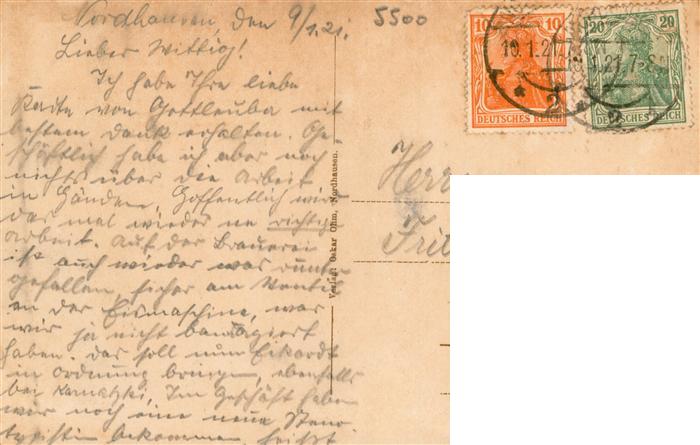 Nordhausen, den 9/1.21.
Lieber Wittig!
Ich habe Ihre liebe
Karte von Gottleuba mit
bestem Dank erhalten. Ge-
schäftlich habe ich aber noch
nichts über die Arbeit
in Händen. Hoffentlich wird
das mal wieder ne richtige
Arbeit. Auf der Brauerei
ist auch wieder was runter
gefallen sicher am Ventil
an der Eismaschine, was
wir ja nicht
haben. Das soll nun Eikardt
in Ordnung bringen, ebenfalls
bei Im Geschäft haben
wir noch eine neue Steno-
typistin bekommen
5500
10 10
10.1.21
DEUTSCHES REICH
20 20
1.21.7-8
DEUTSCHES REICH
Herr
Frit
Verlag: Oskar Ohm, Nordhausen.